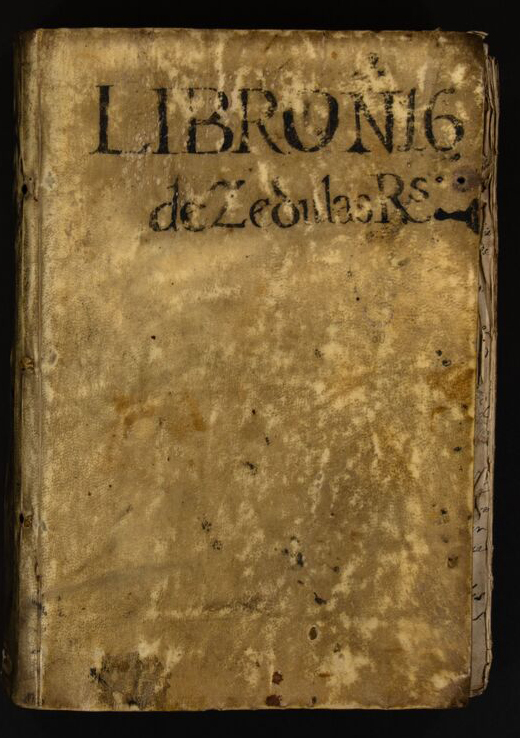 LIBRO N 16
de Zedulas Rs